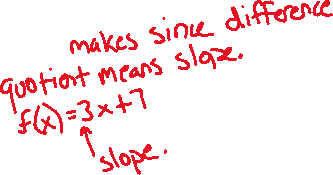 makes since difference
quotient means slope.
f(x)=3x+7
slope.